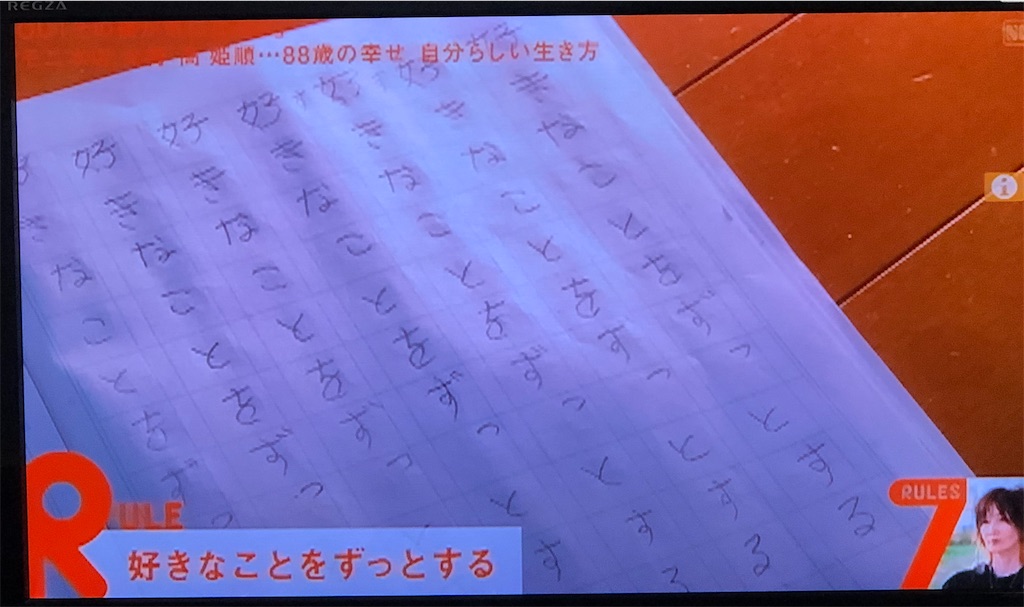 REGZA
姫順…88歳の幸せ 自分らしい生き方
好きなことをずっとする
好きなことをずっとする
好きなことをずっとす
好きなことをずっとす
好きなことをずっ
好きなことをずっ
好きなことをずっ
RULE
好きなことをずっとする
RULES
7